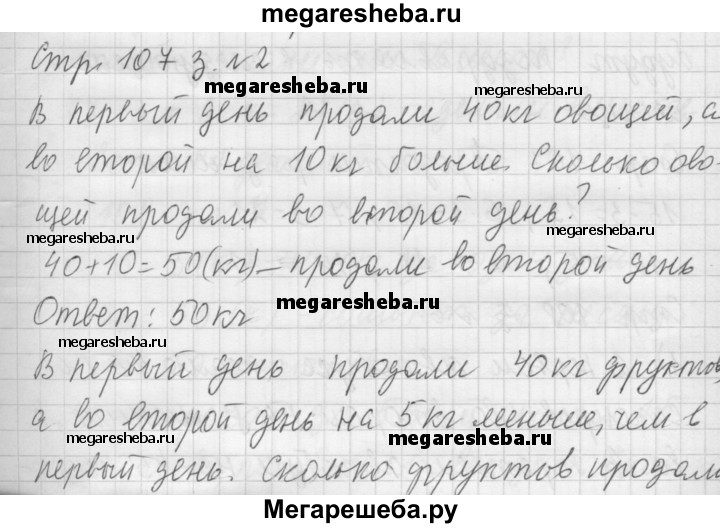 megaresheba.ru
Стр. 107 з. №2
megaresheba.ru
В первый день продали 40кг овощей, а
megaresheba.ru
во второй на 10кг больше. Сколько ово-
щей продали во второй день?
megaresheba.ru megaresheba.ru
40+10=50(кг) – продали во второй день
megaresheba.ru
Ответ: 50кг
megaresheba.ru
В первый день продали 40кг фруктов,
megaresheba.ru
а во второй день на 5кг меньше, чем в
megaresheba.ru megaresheba.ru
первый день. Сколько фруктов продали
Мегарешеба.ру